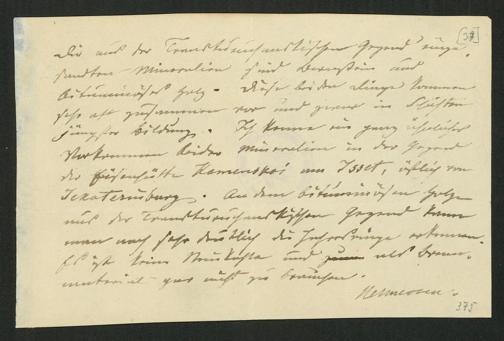 [37]
Die aus der Transturuchanskischen Gegend einge-
sandten Mineralien sind Bernstein und
bituminöses Holz. Diese beiden Dinge kommen
sehr oft zusammen vor und zwar in Schichten
jüngster Bildung. Ich kenne ein ganz ähnliches
Vorkommen beider Mineralien in der Gegend
der Eisenhütte Kamenskoi am Isset, östlich von
Jekaterinburg. An dem bituminösen Holze
aus der Transturuchanskischen Gegend kann
man noch sehr deutlich die Jahresringe erkennen.
Es ist keine Braunkohle und als Brenn-
material gar nicht zu brauchen.
375